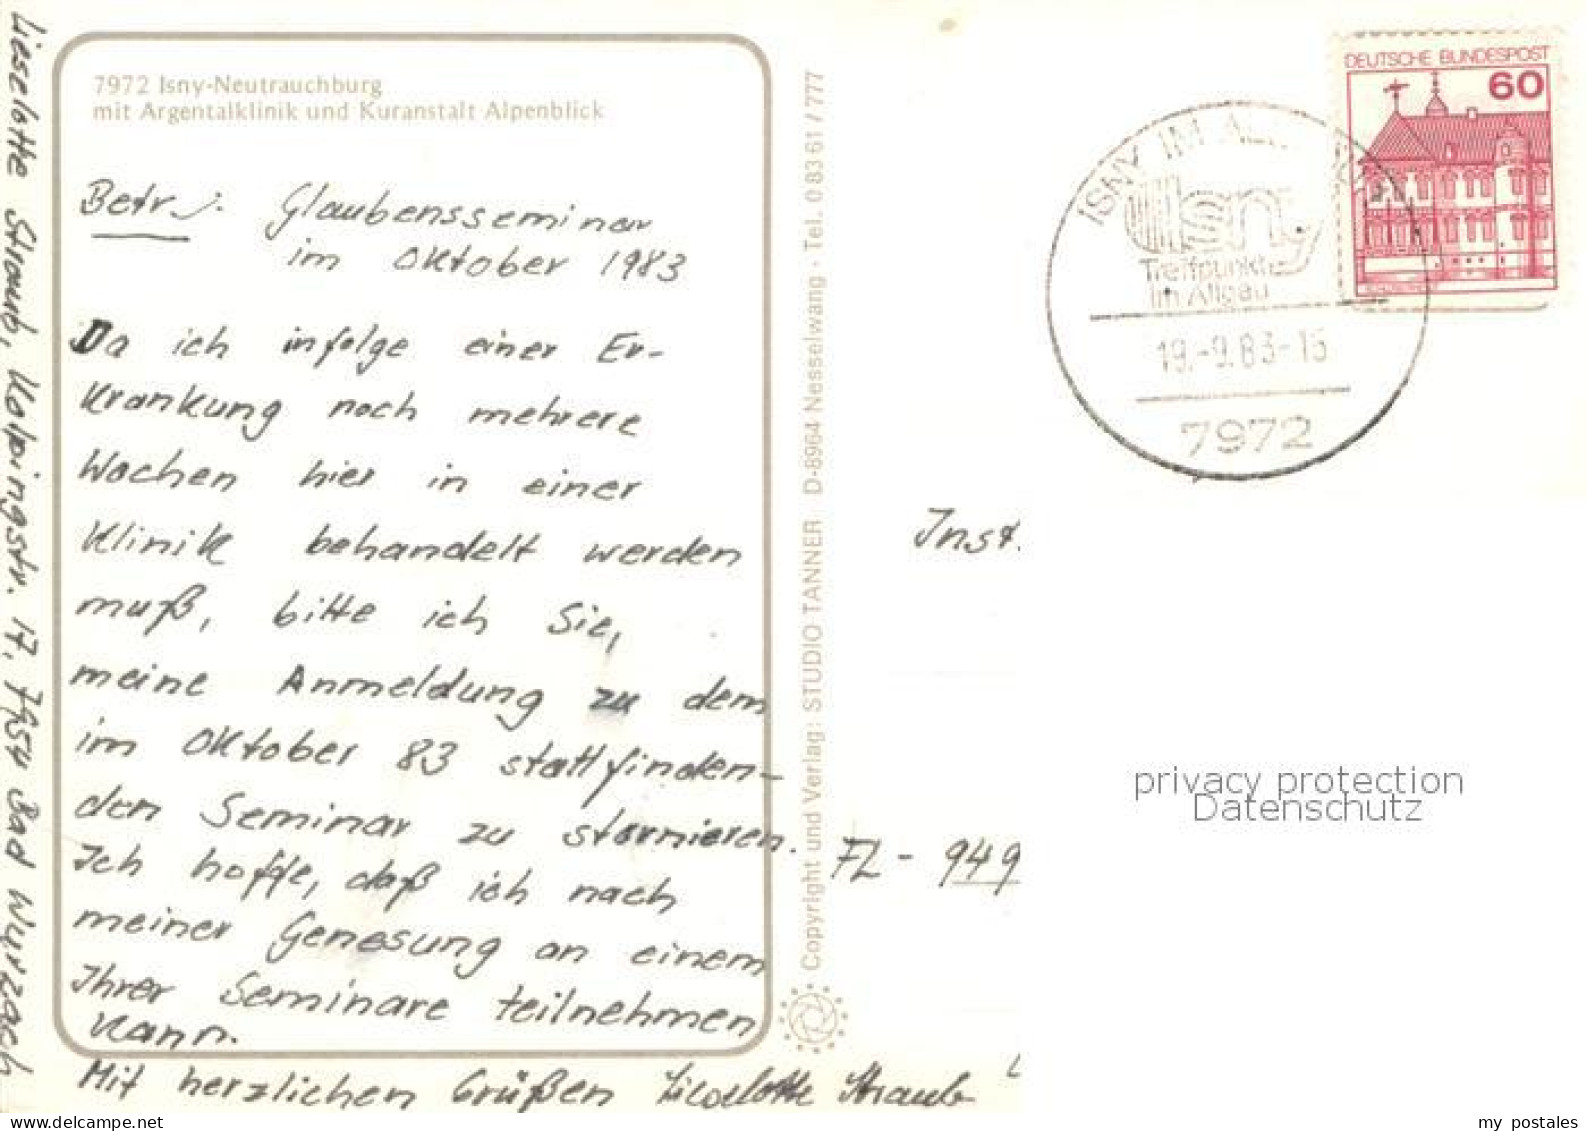 7972 Isny-Neutrauchburg
mit Argentalklinik und Kuranstalt Alpenblick
Betr.: Glaubensseminar
im Oktober 1983
Da ich infolge einer Er-
krankung noch mehrere
Wochen hier in einer
Klinik behandelt werden
muß, bitte ich Sie,
meine Anmeldung zu dem
im Oktober 83 stattfinden-
den Seminar zu stornieren.
Ich hoffe, daß ich nach
meiner Genesung an einem
Ihrer Seminare teilnehmen
kann.
Mit herzlichen Grüßen Lieselotte Straub
Lieselotte Straub, Kolpingstr. 17, 7954 Bad Wurzach
Copyright und Verlag: STUDIO TANNER D-8964 Nesselwang · Tel. 0 83 61 / 777
DEUTSCHE BUNDESPOST
60
ISNY IM
Isny
Treffpunkt
im Allgäu
19.-9.83-15
7972
Inst.
FL - 949
privacy protection
Datenschutz
my postales